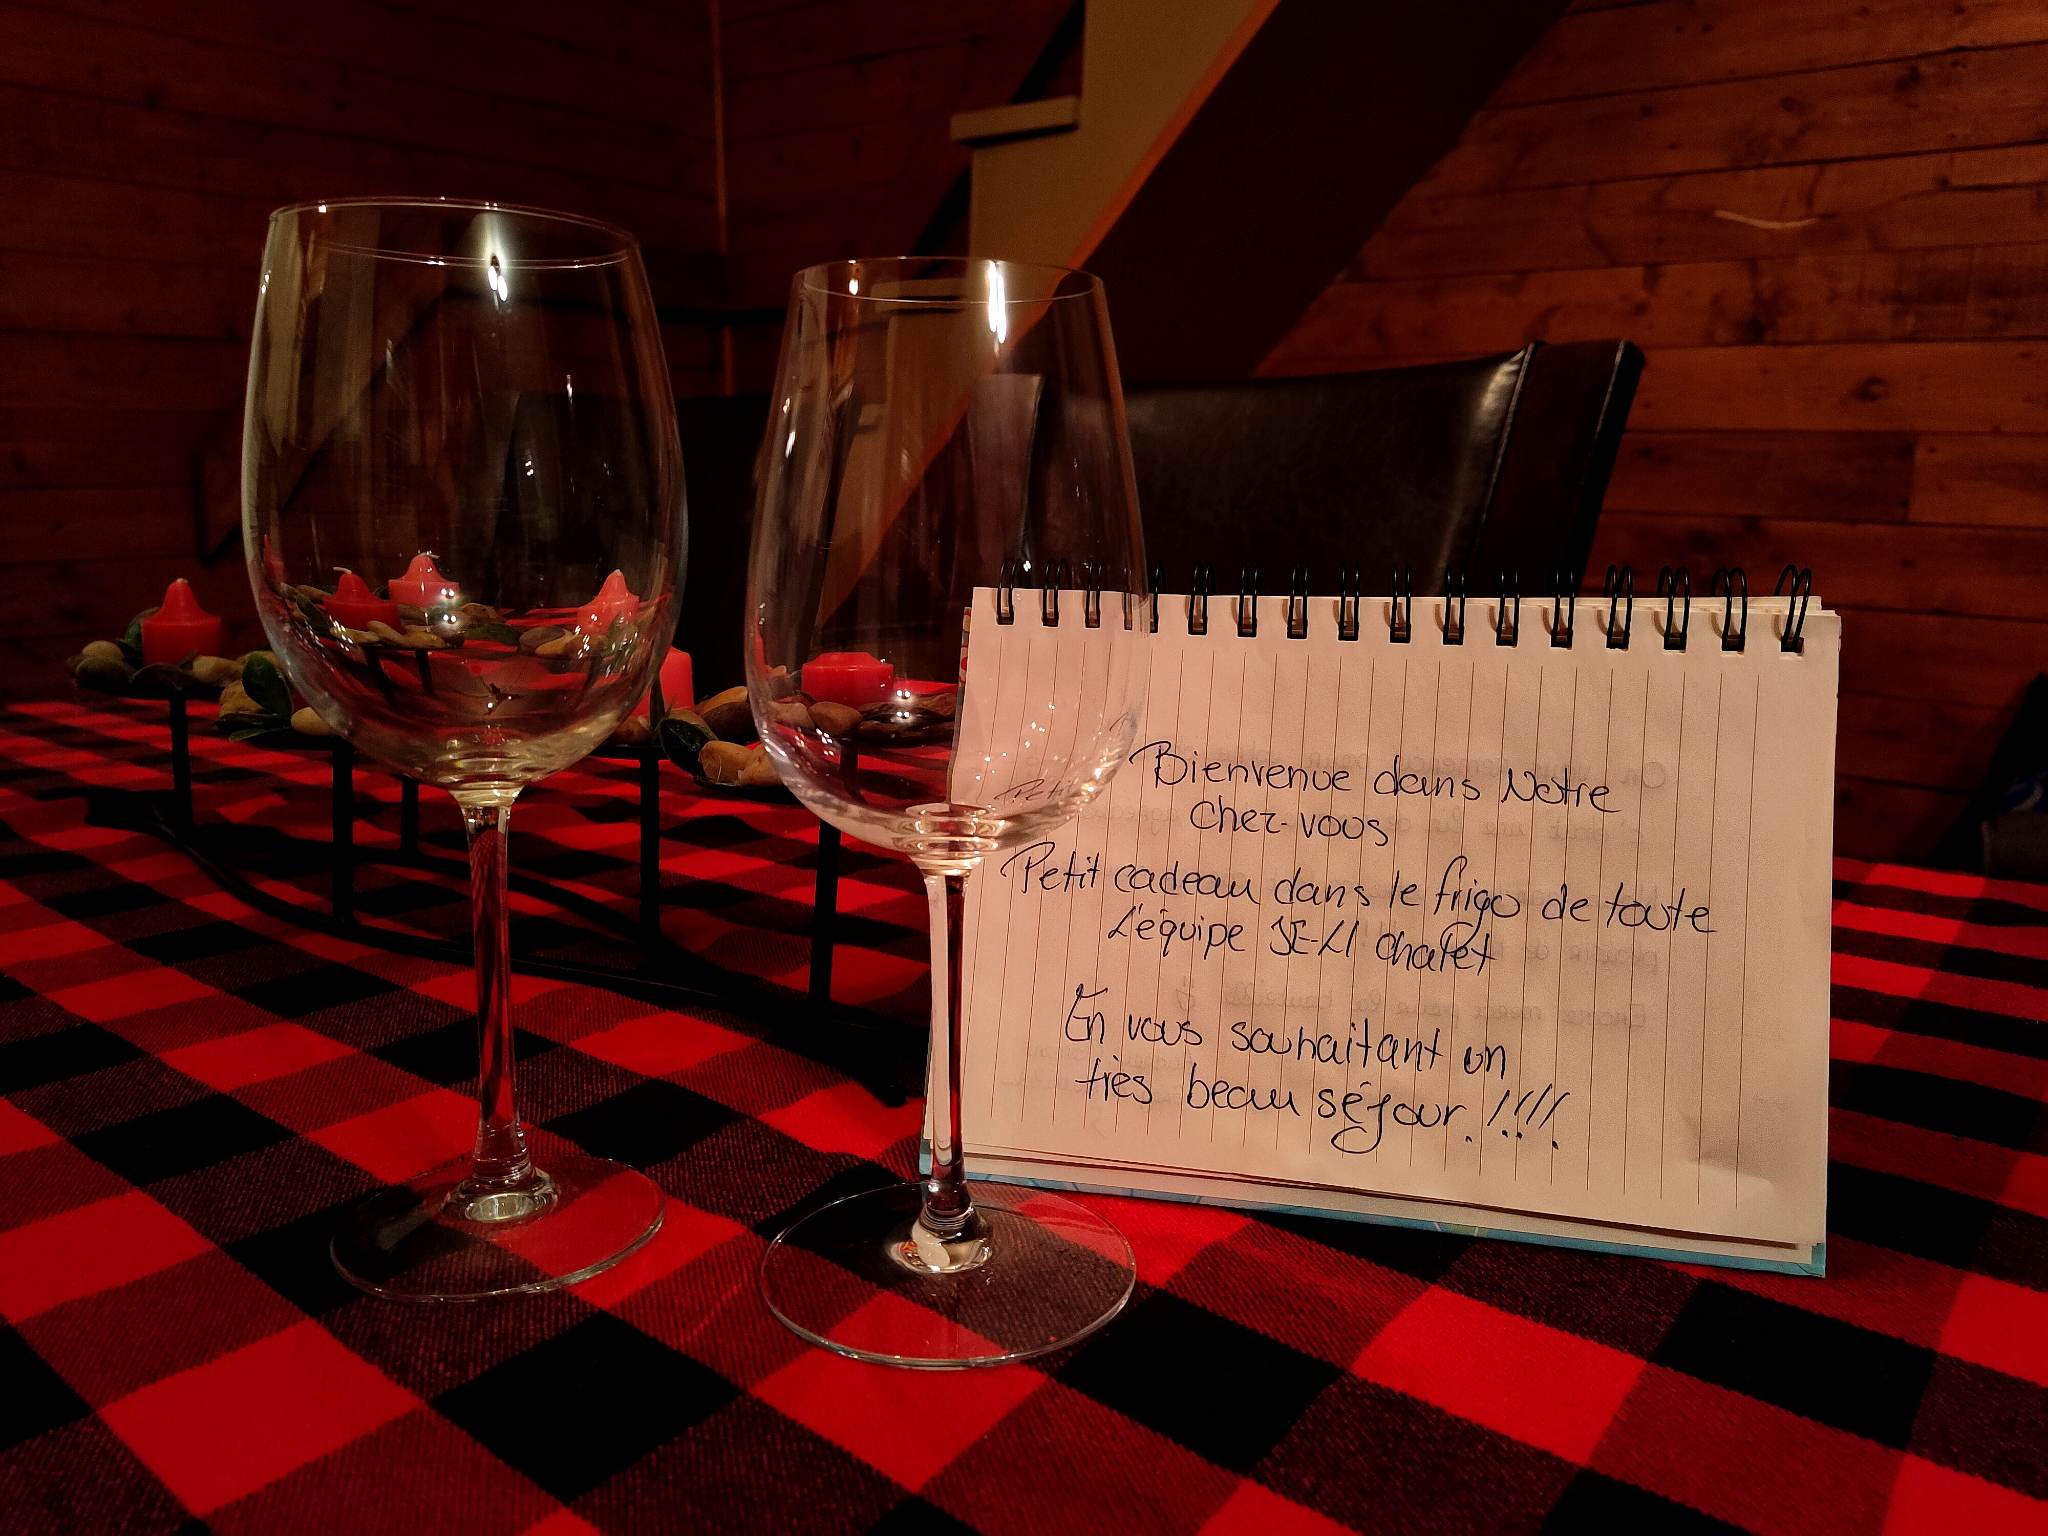 Bienvenue dans Notre
chez-vous
Petit cadeau dans le frigo de toute
L'équipe JE-LI chalet
En vous souhaitant un
très beau séjour.!!!!